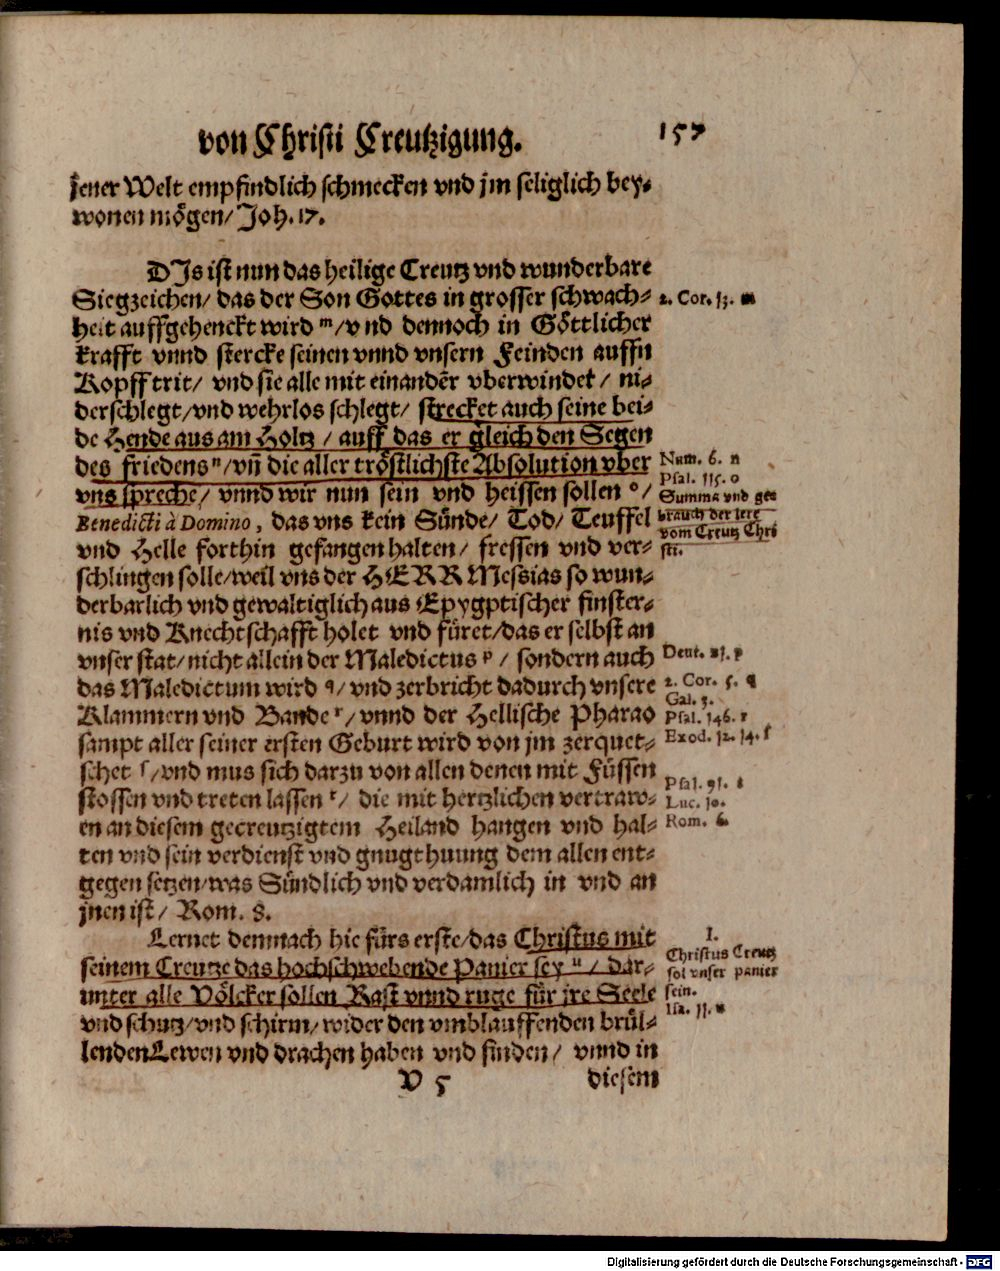 von Christi Creutzigung. 157
jener Welt empfindlich schmecken vnd jm seliglich bey-
wonen mögen/ Joh. 17.
DIs ist nun das heilige Creutz vnd wunderbare
Siegzeichen/ das der Son Gottes in grosser schwach-
heit auffgehenckt wird m/ vnd dennoch in Göttlicher
krafft vnnd stercke seinen vnnd vnsern Feinden auffn
Kopff trit/ vnd sie alle mit einandẽr vberwindet/ ni-
derschlegt/ vnd wehrlos schlegt/ strecket auch seine bei-
de Hende aus am Holtz/ auff das er gleich den Segen
des friedens n/ vñ die aller tröstlichste Absolution vber
vns spreche/ vnnd wir nun sein vnd heissen sollen o/
Benedicti à Domino, das vns kein Sünde/ Tod/ Teuffel
vnd Helle forthin gefangen halten/ fressen vnd ver-
schlingen solle/ weil vns der HERR Messias so wun-
derbarlich vnd gewaltiglich aus Epygptischer finster-
nis vnd Knechtschafft holet vnd füret/ das er selbst an
vnser stat/ nicht allein der Maledictus p/ sondern auch
das Maledictum wird q/ vnd zerbricht dadurch vnsere
Klammern vnd Bande r/ vnnd der Hellische Pharao
sampt aller seiner ersten Geburt wird von jm zerquet-
schet ſ/ vnd mus sich darzu von allen denen mit Füssen
stossen vnd treten lassen t/ die mit hertzlichen vertraw-
en an diesem gecreutzigtem Heiland hangen vnd hal-
ten vnd sein verdienst vnd gnugthuung dem allen ent-
gegen setzen/ was Sündlich vnd verdamlich in vnd an
jnen ist/ Rom. 8.
Lernet demnach hie fürs erste/ das Christus mit
seinem Creutze das hochschwebende Panier sey u/ dar-
unter alle Völcker sollen Rast vnnd ruge für jre Seele
vnd schutz/ vnd schirm/ wider den vmblauffenden brül-
lenden Lewen vnd drachen haben vnd finden/ vnnd in
V 5 diesem
2. Cor. 13. m
Num. 6. n
Psal. 115. o
Summa vnd ge-
brauch der lere
vom Creutz Chri
sti.
Deut. 21. p
2. Cor. 5. q
Gal. 3.
Psal. 146. r
Exod. 12. 14. ſ
Psal. 91. t
Luc. 10.
Rom. 6.
I.
Christus Creutz
sol vnser panier
sein.
Isa. 11. u
Digitalisierung gefördert durch die Deutsche Forschungsgemeinschaft - DFG